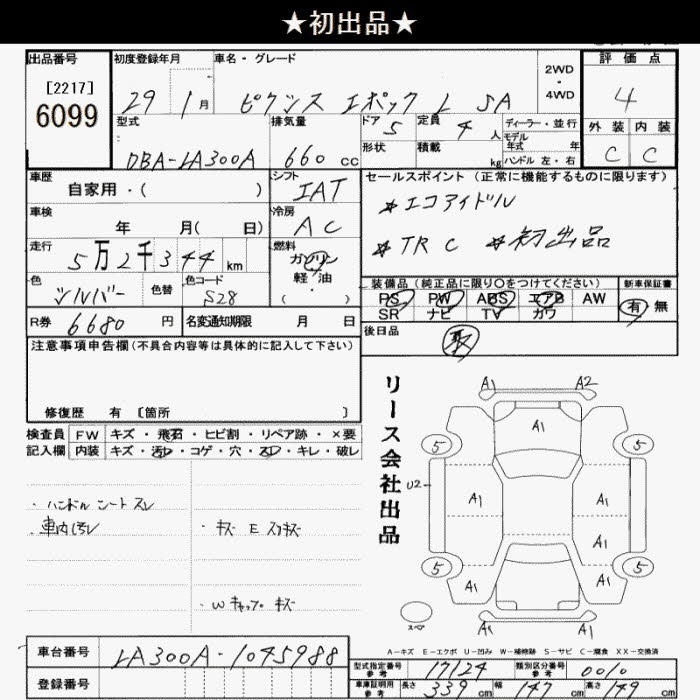 ★初出品★
出品番号 初度登録年月 車名・グレード 2WD・4WD 評価点
[2217]
6099
29 1月 ピクシス エポック L SA 4
型式 排気量 ドア 定員 ディーラー・並行 外装 内装
DBA-LA300A 660cc 5 4人 モデル年式 年 C C
形状 積載 kg ハンドル 左・右
車歴 シフト セールスポイント (正常に機能するものに限ります)
自家用・( ) IAT *エコアイドル
車検 冷房
年 月( 日) AC *TRC *初出品
走行 燃料
5万2千344km ガソリン
軽・油
( ・ )
色 色替 色コード 装備品(純正品に限り○をつけてください) 新車保証書
シルバー S28 PS PW ABS エアB AW 有 無
SR ナビ TV カワ
R券 6680円 名変通知期限 月 日 後日品
注意事項申告欄(不具合内容等は具体的に記入して下さい) 取
修復歴 有 [箇所 ]
検査員 FW キズ・飛石・ヒビ割・リペア跡・×要
記入欄 内装 キズ・汚れ・コゲ・穴・スレ・キレ・破レ
・ハンドル シート スレ
車内汚レ ・キズ E スリキズ
・Wキャップ キズ
リース会社出品
A1 A2
A1
5 5
U2 A1 A1
A1
5 5
A1 A1 A1
A1 A1
スペア
A-キズ E-エクボ U-凹み W-補修跡 S-サビ C-腐食 XX-交換済
車台番号 LA300A-1045988 型式指定番号 参考 17124 類別区分番号 参考 0010
登録番号 車庫証明用 参考 長さ 339cm 幅 147cm 高さ 149cm